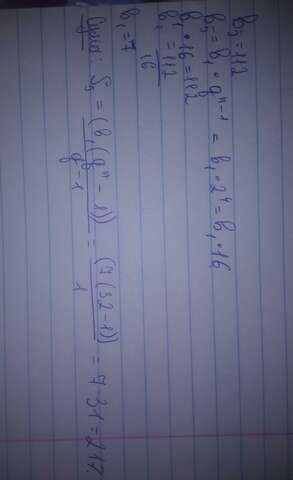 b₅=112
b₅=b₁·qⁿ⁻¹=b₁·2⁴=b₁·16
b₁·16=112
b₁=112/16
b₁=7
S₅=(b₁(qⁿ-1))/q-1=(7(32-1))/1=7·31=217